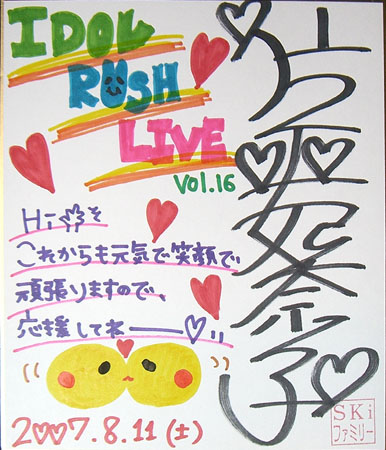 IDOL
RUSH
LIVE
Vol.16
Hiろを
これからも元気で笑顔で、
頑張りますので、
応援してネー♡,,
2♡♡7.8.11(土)
妃奈子
SKi
ファミリー